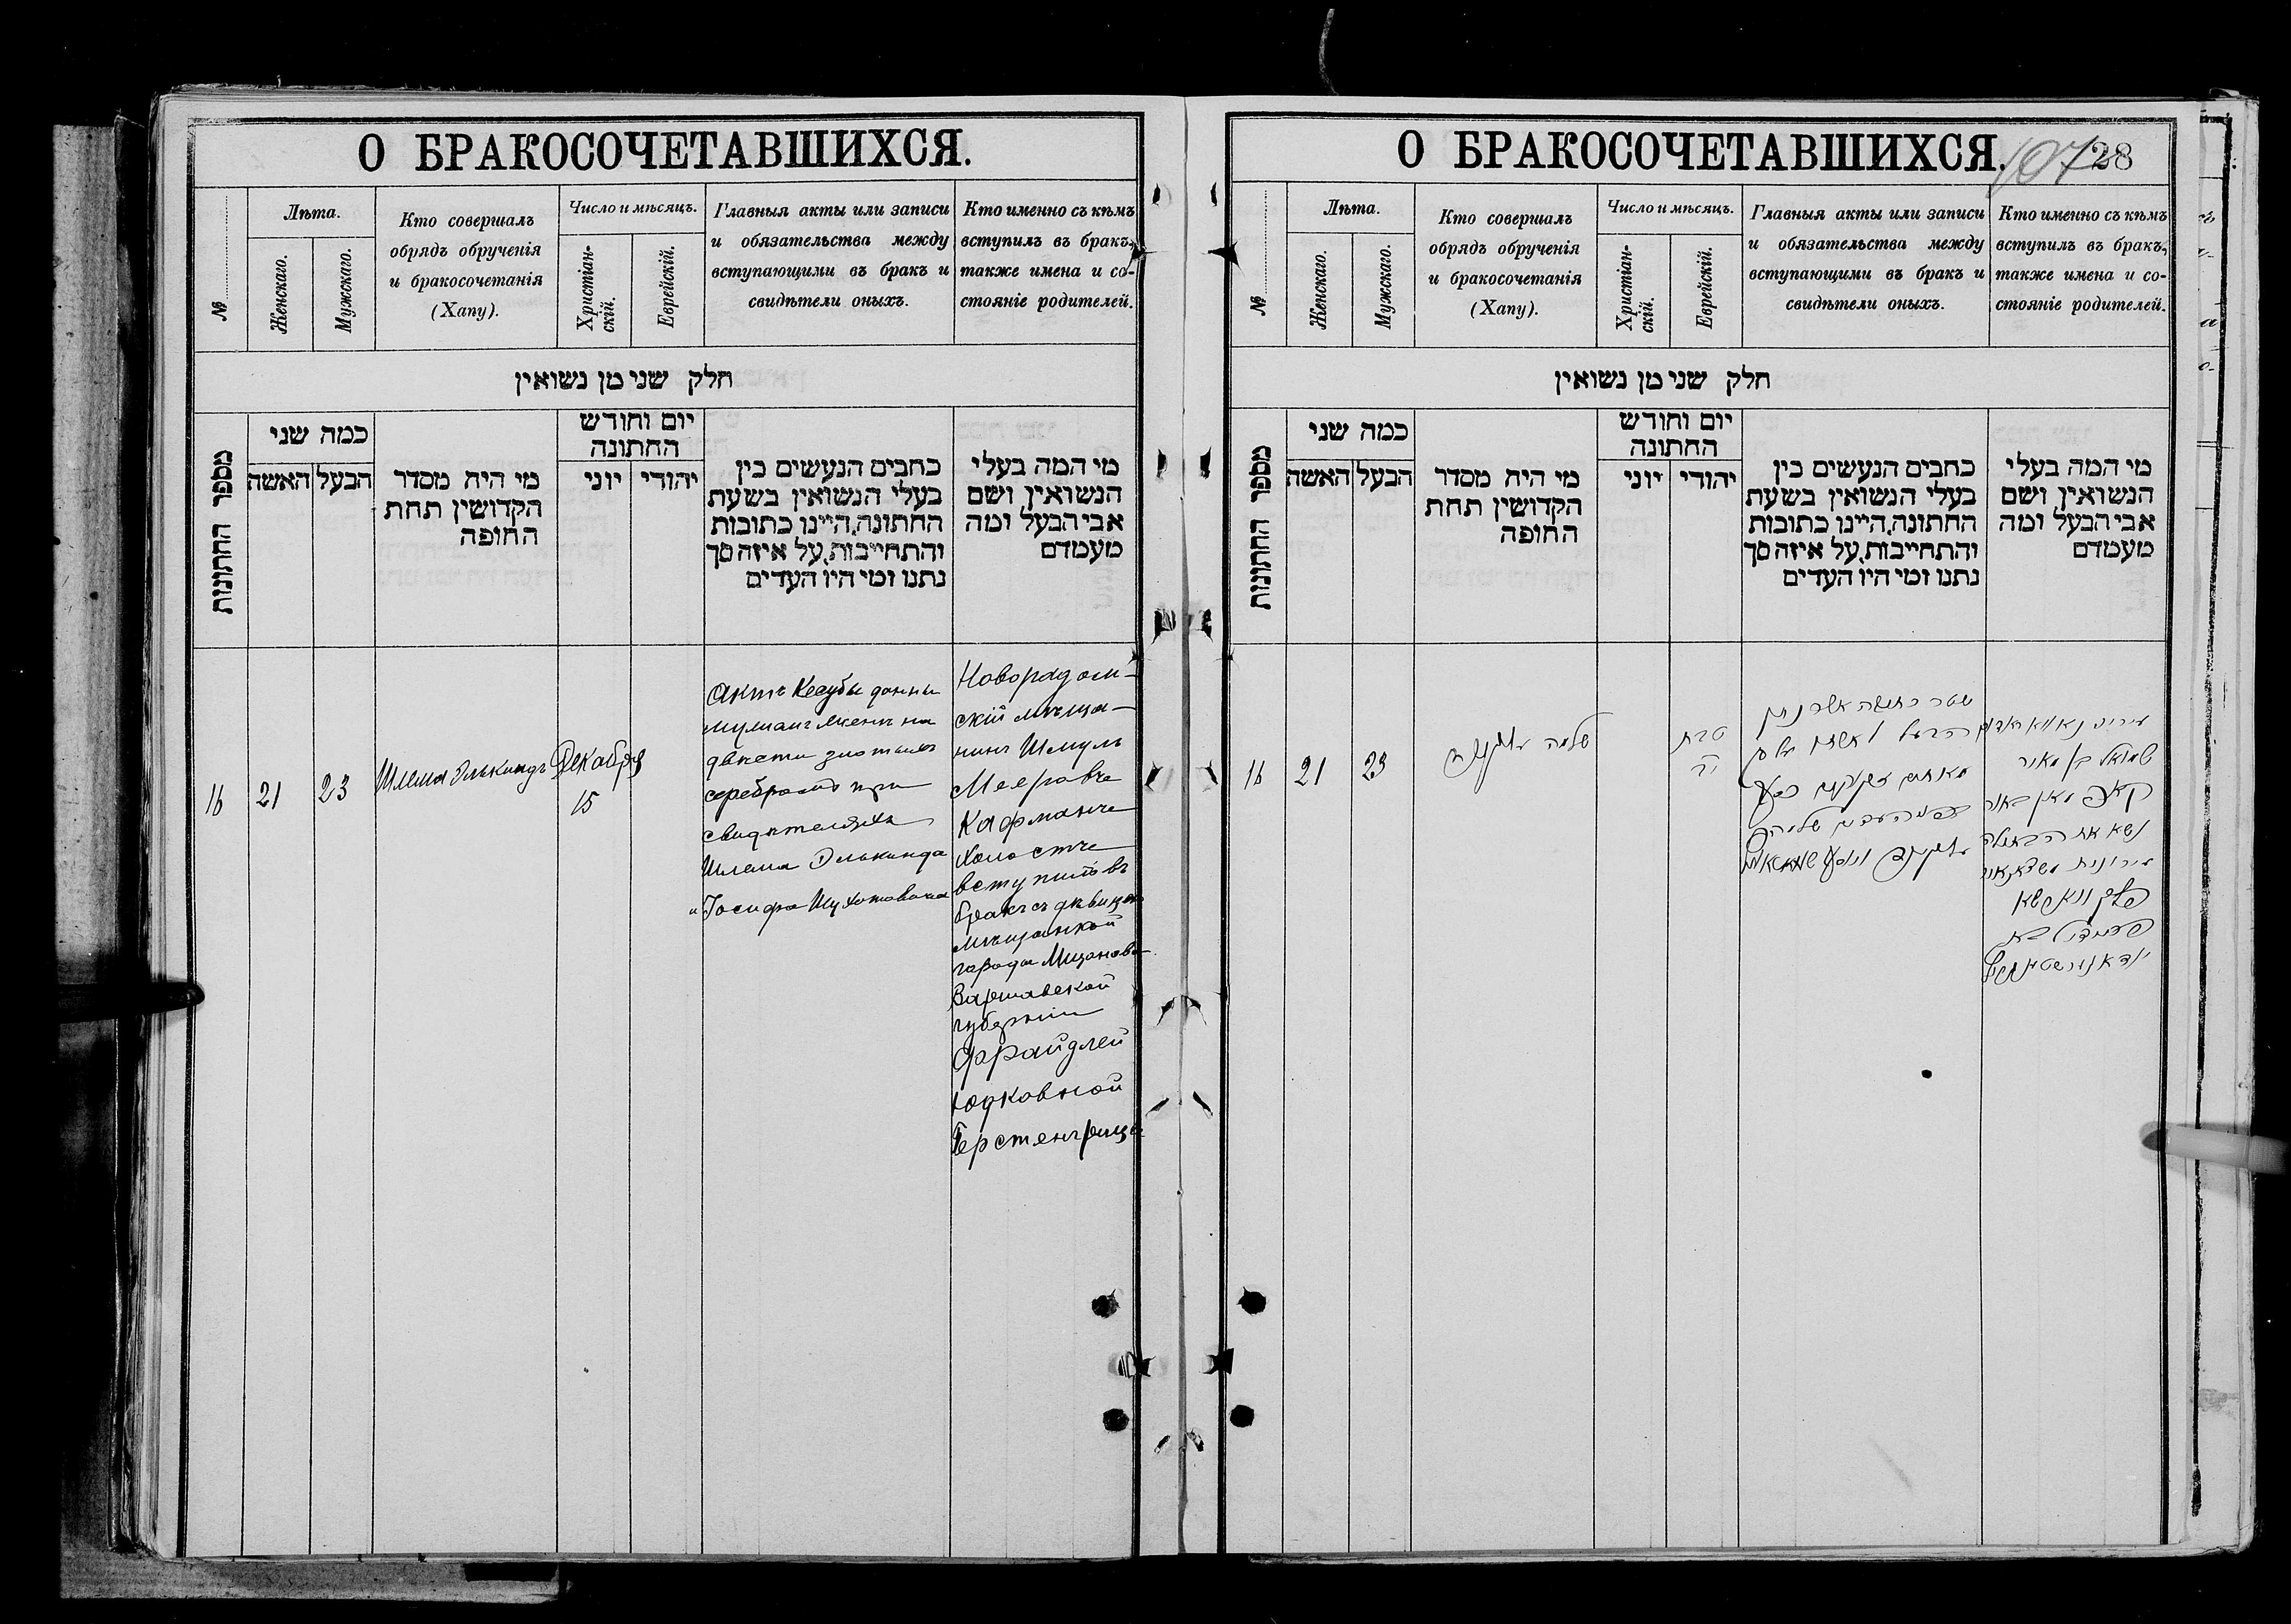 О БРАКОСОЧЕТАВШИХСЯ.
№
Лѣта.
Женскаго.
Мужскаго.
Кто совершалъ
обрядъ обрученія
и бракосочетанія
(Хапу).
Число и мѣсяцъ.
Христіан-
скій.
Еврейскій.
Главныя акты или записи
и обязательства между
вступающими въ бракъ и
свидѣтели оныхъ.
Кто именно съ кѣмъ
вступилъ въ бракъ,
также имена и со-
стояніе родителей.
חלק שני מן נשואין
מספר החתונות
כמה שני
האשה
הבעל
מי היה מסדר
הקדושין תחת
החופה
יום וחודש
החתונה
יוני
יהודי
כתבים הנעשים בין
בעלי הנשואין בשעת
החתונה, היינו כתובות
והתחייבות, על איזה סך
נתנו ומי היו העדים
מי המה בעלי
הנשואין ושם
אבי הבעל ומה
מעמדם
16
21
23
Шлема Элькиндъ
Декабря
15
Актъ Кесубы данны
мужемъ женѣ на
двѣсти злотыхъ
серебромъ при
свидѣтеляхъ
Шлема Элькинда
и Іосифа
Новорадом-
скій мѣща-
нинъ Шмуль
Мееровъ
Кафманъ
Холостъ
вступилъ въ
бракъ съ дѣвицею
мѣщанкой
города Мщонова
Варшавской
губерніи
Фрайдлей
Юдковной
Герстенъ
О БРАКОСОЧЕТАВШИХСЯ.
107
28
№
Лѣта.
Женскаго.
Мужскаго.
Кто совершалъ
обрядъ обрученія
и бракосочетанія
(Хапу).
Число и мѣсяцъ.
Христіан-
скій.
Еврейскій.
Главныя акты или записи
и обязательства между
вступающими въ бракъ и
свидѣтели оныхъ.
Кто именно съ кѣмъ
вступилъ въ бракъ,
также имена и со-
стояніе родителей.
חלק שני מן נשואין
מספר החתונות
כמה שני
האשה
הבעל
מי היה מסדר
הקדושין תחת
החופה
יום וחודש
החתונה
יוני
יהודי
כתבים הנעשים בין
בעלי הנשואין בשעת
החתונה, היינו כתובות
והתחייבות, על איזה סך
נתנו ומי היו העדים
מי המה בעלי
הנשואין ושם
אבי הבעל ומה
מעמדם
16
21
23
שלמה
טבת
שטר כתובה אשר נתן
הבעל לאשתו
מאתים זהובים כסף
העדים שלמה
שמואל בן מאיר
קאפמאן בחור
נשא את הבתולה
פלך ווארשא